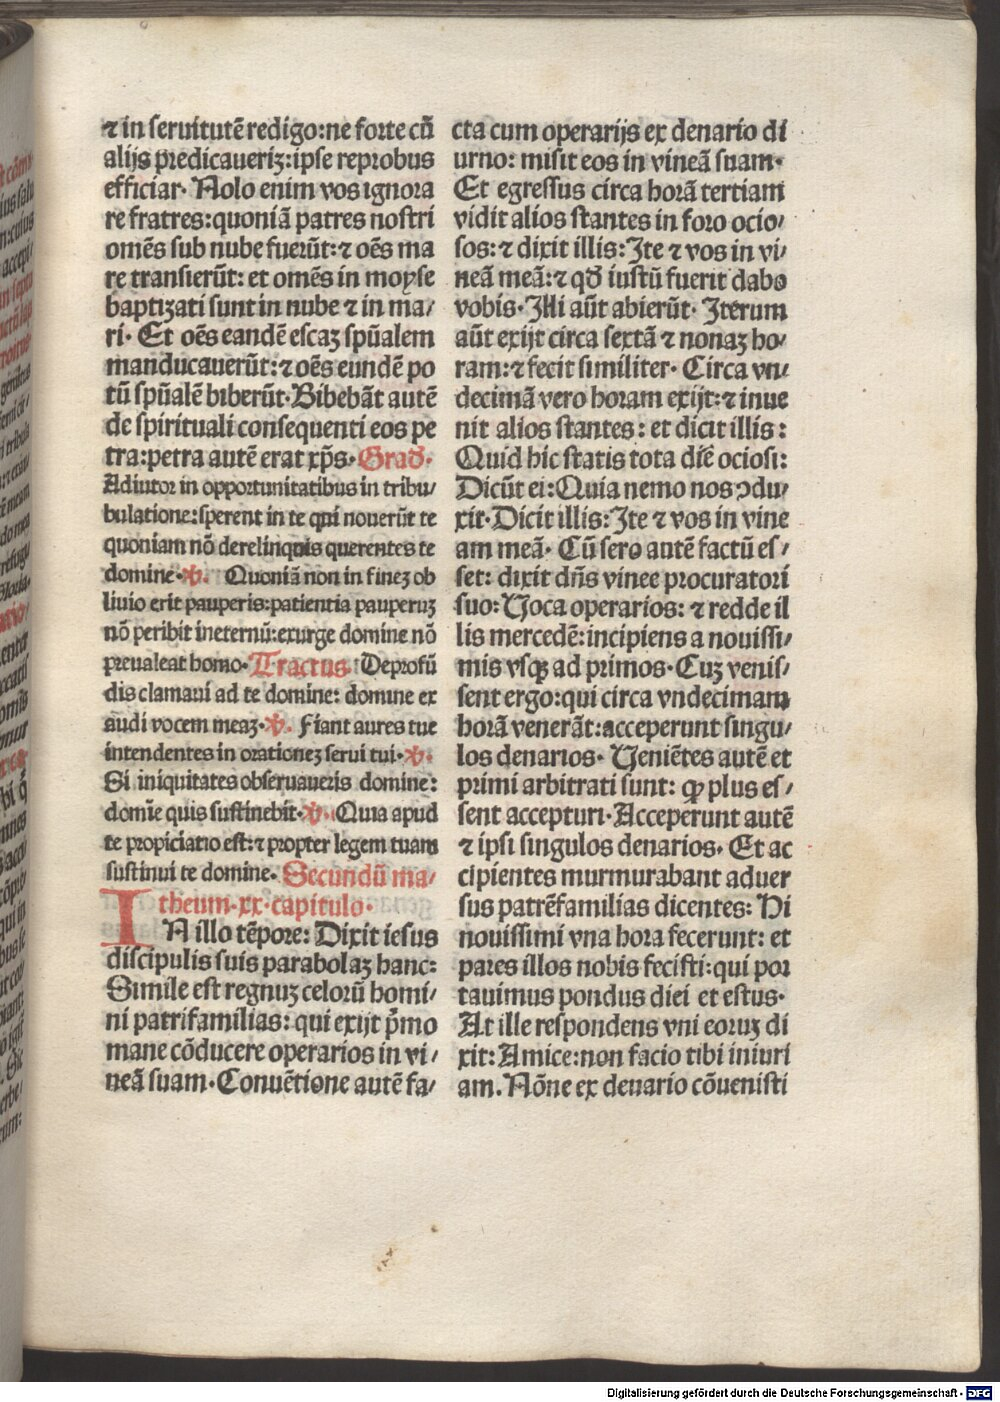 ⁊ in seruitutē redigo:ne forte cū
alijs predicaueriꝫ:ipse reprobus
efficiar· Nolo enim vos ignora
re fratres:quoniā patres nostri
omēs sub nube fuerūt:⁊ oēs ma
re transierūt: et omēs in moyse
baptizati sunt in nube ⁊ in ma/
ri· Et oēs eandē escaꝫ spūalem
manducauerūt:⁊ oēs eundē po
tū spūalē biberūt·Bibebāt autē
de spirituali consequenti eos pe
tra:petra autē erat xp̄s· Grad̄·
Adiutor in opportunitatibus in tribu/
bulatione:sperent in te qui nouerūt te
quoniam nō derelinquis querentes te
domine·℣. Quoniā non in fineꝫ ob
liuio erit pauperis:patientia pauperuꝫ
nō peribit ineternū:exurge domine nō
preualeat homo·Tractus. Deprofū
dis clamaui ad te domine: domine ex
audi vocem meaꝫ·℣. Fiant aures tue
intendentes in orationeꝫ serui tui·℣.
Si iniquitates obseruaueris domine:
domīe quis sustinebit·℣. Quia apud
te propiciatio est:⁊ propter legem tuam
sustinui te domine· Secundū ma/
theum·xx·capitulo·
IN illo tēpore: Dixit iesus
discipulis suis parabolaꝫ hanc:
Simile est regnuꝫ celorū homi/
ni patrifamilias: qui exijt p̄mo
mane cōducere operarios in vi/
neā suam·Conuētione autē fa/
cta cum operarijs ex denario di
urno: misit eos in vineā suam·
Et egressus circa horā tertiam
vidit alios stantes in foro ocio/
sos:⁊ dixit illis:Ite ⁊ vos in vi/
neā meā:⁊ qd̄ iustū fuerit dabo
vobis·Illi aūt abierūt· Iterum
aūt exijt circa sextā ⁊ nonaꝫ ho/
ram:⁊ fecit similiter· Circa vn/
decimā vero horam exijt:⁊ inue
nit alios stantes: et dicit illis:
Quid hic statis tota diē ociosi:
Dicūt ei:Quia nemo nos ꝯdu/
xit·Dicit illis:Ite ⁊ vos in vine
am meā· Cū sero autē factū es/
set: dixit dn̄s vinee procuratori
suo:Voca operarios: ⁊ redde il
lis mercedē:incipiens a nouissi/
mis vsqꝫ ad primos·Cuꝫ venis/
sent ergo:qui circa vndecimam
horā venerāt:acceperunt singu/
los denarios· Veniētes autē et
primi arbitrati sunt: ꝙ plus es/
sent accepturi·Acceperunt autē
⁊ ipsi singulos denarios· Et ac
cipientes murmurabant aduer
sus patrēfamilias dicentes: Hi
nouissimi vna hora fecerunt: et
pares illos nobis fecisti:qui por
tauimus pondus diei et estus·
At ille respondens vni eoruꝫ di
xit:Amice:non facio tibi iniuri
am. Nōne ex denario cōuenisti
Digitalisierung gefördert durch die Deutsche Forschungsgemeinschaft - DFG